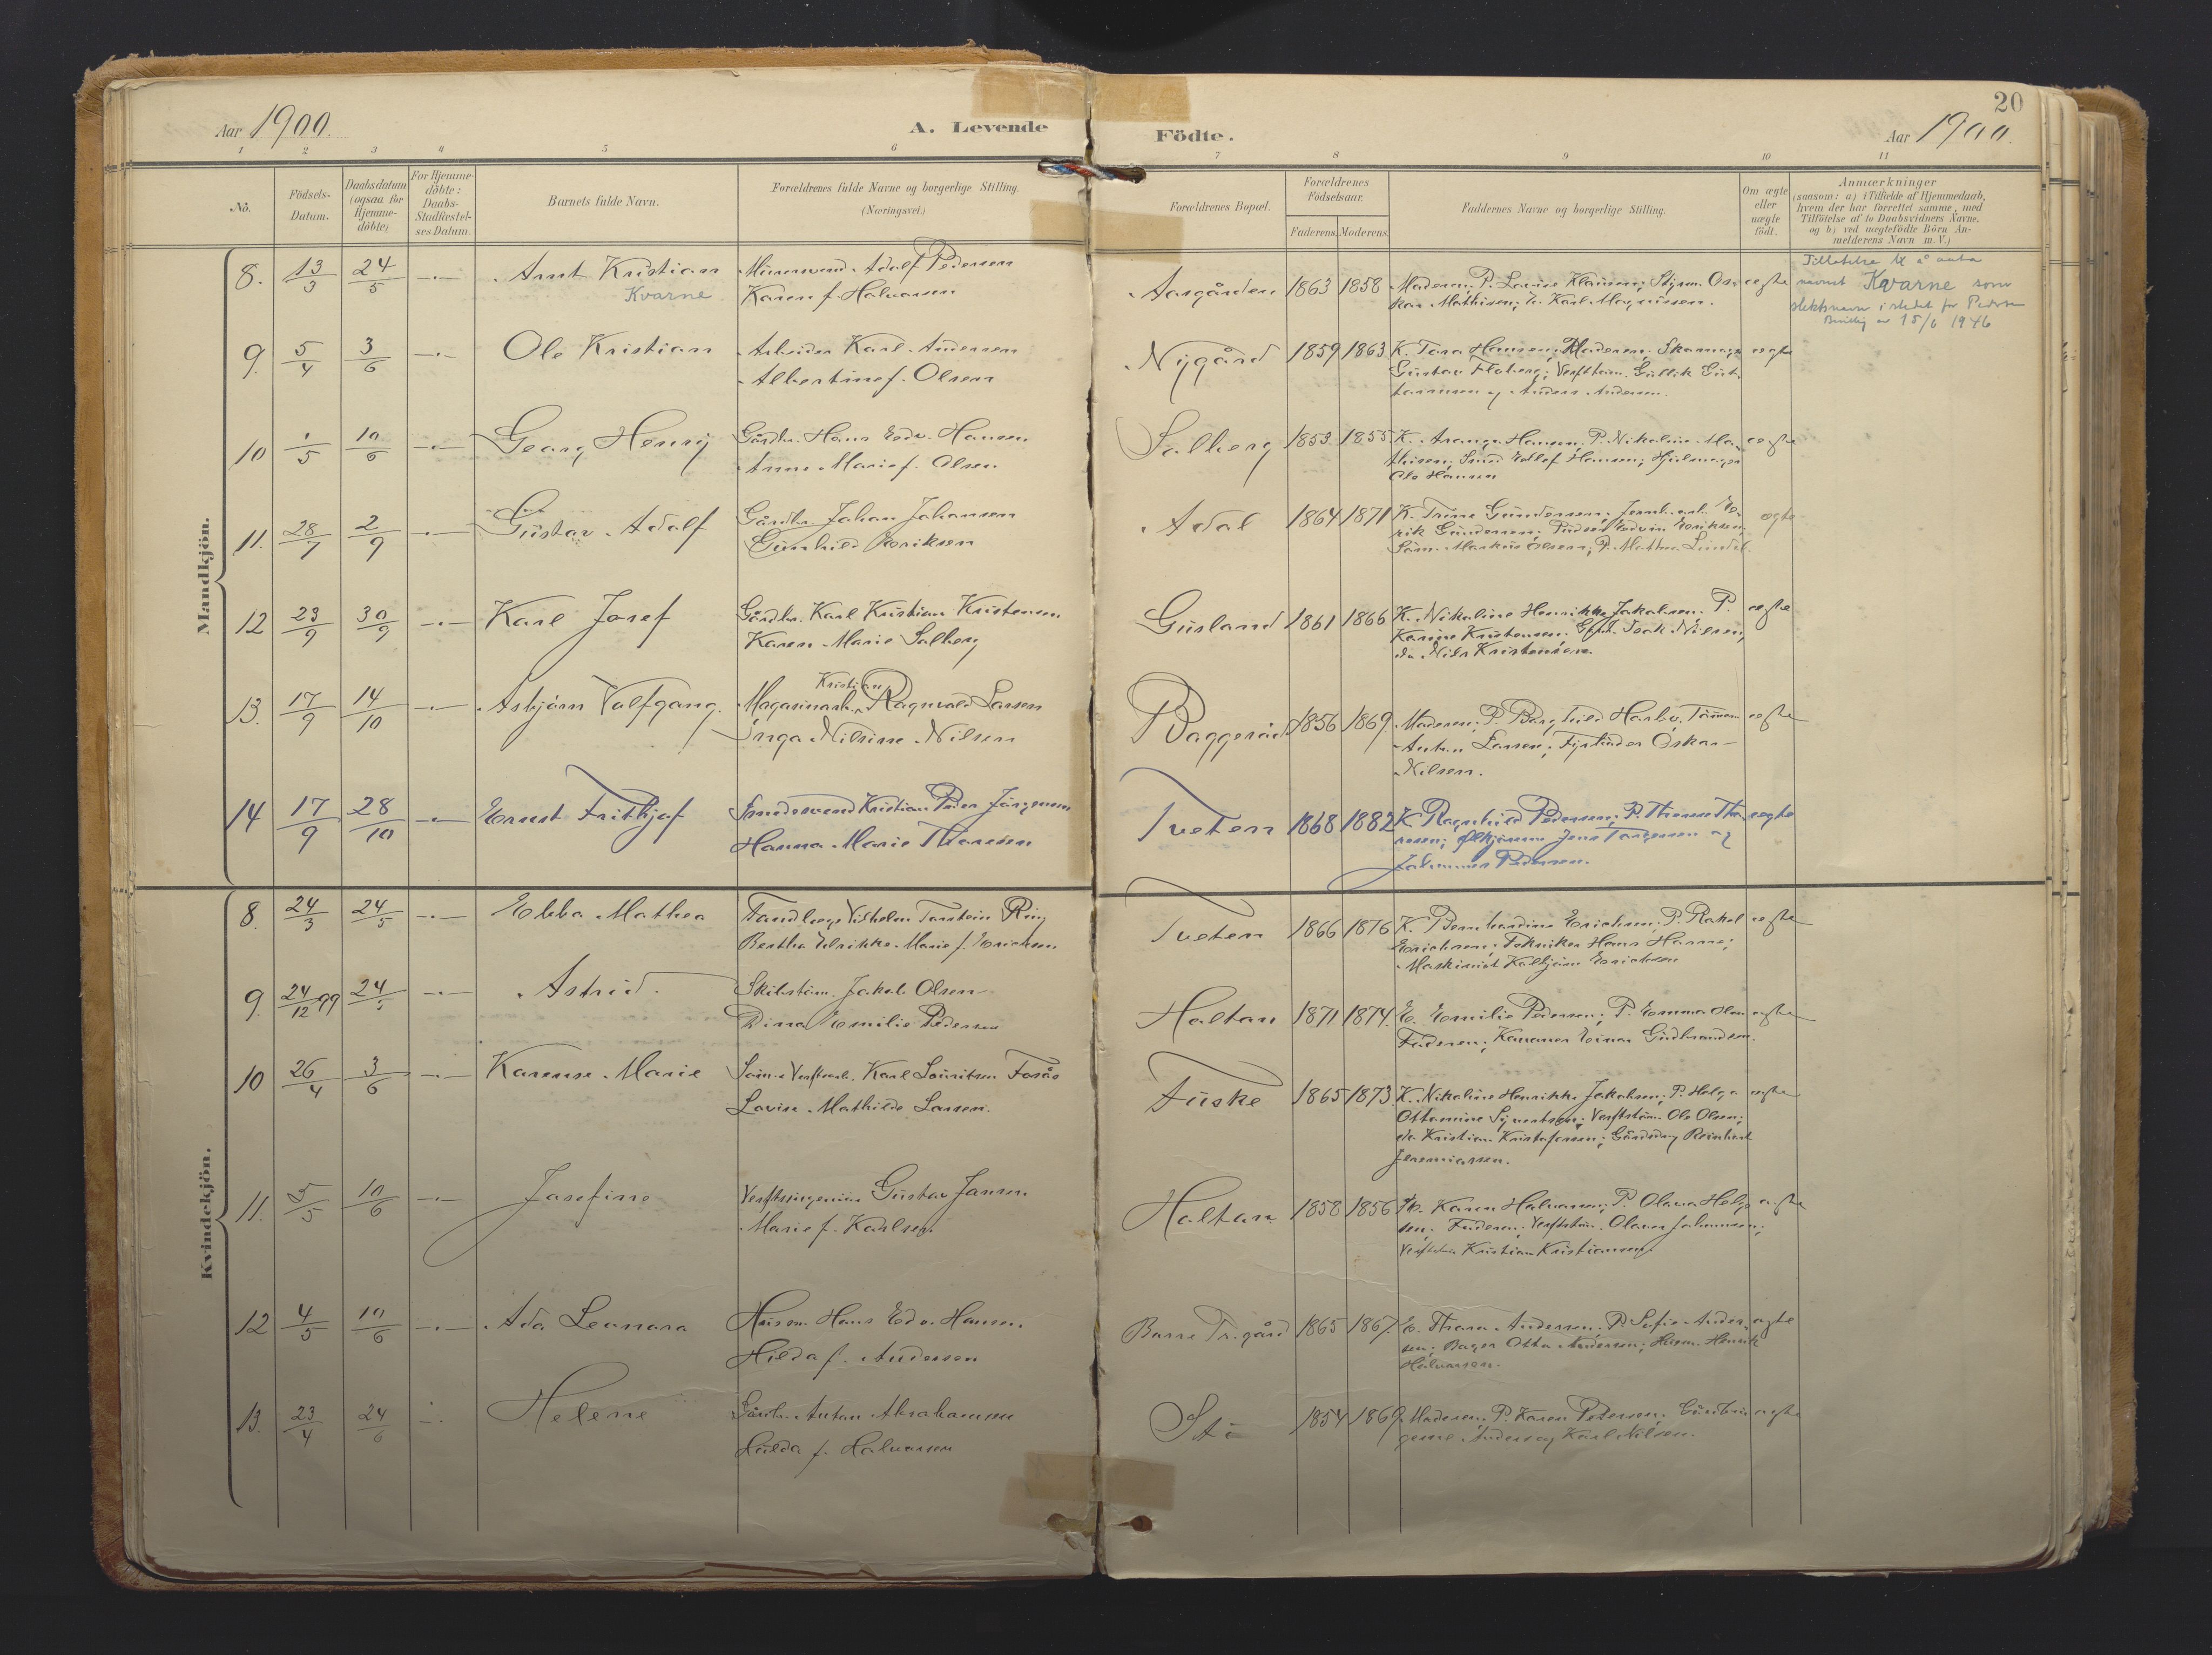 20
Aar 1900.
A. Levende
Födte.
Aar 1900.
1 2 3 4 5 6 7 8 9 10 11
No.
Födsels-
Datum.
Daabsdatum
(ogsaa for
Hjemme-
döbte)
For Hjemme-
döbte:
Daabs-
Stadfæstel-
ses Datum.
Barnets fulde Navn.
Forældrenes fulde Navne og borgerlige Stilling.
(Næringsvei.)
Forældrenes Bopæl.
Forældrenes
Födselsaar.
Faderens. Moderens.
Faddernes Navne og borgerlige Stilling.
Om ægte
eller
uægte
födt.
Anmærkninger
(saasom: a) i Tilfælde af Hjemmedaab,
hvem der har forrettet samme, med
Tilföielse af to Daabsvidners Navne.
og b) ved uægtefödte Börn An-
melderens Navn m. V.)
Mandkjön.
8. 13/3 24/5 -"- Arnt Kristian
Kvarne
Murersvend Adolf Pedersen
Karen f. Halvorsen
Aasgården 1863 1858 Moderen; P. Lovise Klausen; Styrm. Os-
kar Mathisen; E. Karl Magnussen.
ægte
Tillatelse til å anta
navnet Kvarne som
slektsnavn i stedet for Pedersen
Bevillig av 15/6 1946
9. 5/4 3/6 -"- Ole Kristian
Arbeider Karl Andersen
Albertine f. Olsen
Nygård 1859 1863 K. Tora Hansen; Moderen; Skomag.
Gustav Floberg; Verftstöm. Gullik Gus-
tavnsen og Anders Andersen.
ægte
10 1/5 10/6 -"- Georg Henry
Gårdbr. Hans Edv. Hansen
Anne Marie f. Olsen
Solberg 1853 1855 K. Hansen; P. Nikoline Ma-
thisen; Smed Edlef Hansen; Hjulmager
Olo Hansen
ægte
11. 28/7 2/9 -"- Gustav Adolf
Gårdbr. Johan Johansen
Gunhild Eriksen
Adal 1864 1871 K. Trine Gundersen; Jernb. arb. E-
rik Gundersen; Pudser Edvin Eriksen;
Söm. Markus Olsen; P. Mathea Lindal.
ægte
12 23/9 30/9 -"- Karl Josef
Gårdbr. Karl Kristian Kristensen
Karen Marie Solberg
Gusland 1861 1866 K. Nikoline Henrikke Jakobsen; P.
Karine Kristensen; Gbr. Isak Nilsen;
do Nils Kristensen.
ægte
13. 17/9 14/10 -"- Asbjörn Volfgang.
Kristian
Magasinarb. Ragnvald Larsen
Inga Nilsine Nilsen
Baggeröd 1856 1869 Moderen; P. Borghild Harby; Tömmerm.
Anton Larsen; Fyrböder Oskar
Nilsen.
ægte
14 17/9 28/10 -"- Ernst Frithjof
Smedesvend Kristian Peder Jörgensen
Hanna Marie Thoresen
Tveten 1868 1882 K. Ragnhild Pedersen; P. Therese Tho-
resen; Jens Torgersen og
Johannes Pedersen.
ægte
Kvindekjön.
8. 24/3 24/5 -"- Ebba Mathea
Tandlæge Vilhelm Torstein Ring
Bertha Ulrikke Marie f. Erichsen
Tveten 1866 1876 K. Bernhardine Erichsen; P. Rakel
Erichsen; Tekniker Hans Hanne;
Maskinist Kolbjörn Erichsen
ægte
9. 24/12 99 24/5 -"- Astrid.
Skibstöm. Jakob Olsen
Dina Emilie Pedersen
Holtan 1871 1874. E. Emilie Pedersen; P. Emma Olsen
Faderen; Einar Gudbrandsen.
ægte
10 26/4 3/6 -"- Karense Marie
Söm. & Verftsarb. Karl Lauritsen Fosås
Lovise Mathilde Larsen.
Fuske 1865 1873. K. Nikoline Henrikke Jakobsen; P. Helga
Ottomine Syvertsen; Verftstöm. Ole Olsen;
do Kristian Kristofersen; Gårddreng Reinhart
Jeremiassen.
ægte
11. 5/5 10/6 -"- Josefine
Verftsingeniör Gustav Jansen
Marie f. Karlsen.
Holtan 1858 1856 K. Karen Halvorsen; P. Olava Helge-
sen; Faderen; Verftstöm. Olaves Johannsen;
Verftstöm Kristian Kristiansen.
ægte
12 4/5 10/6 -"- Ada Leonora
Husm. Hans Edv. Hansen.
Hilda f. Andersen
Borre Pr.gård 1865 1867. E. Thora Andersen; P. Sofie Ander-
sen; Bager Otto Andersen; Husm. Henrik
Halvorsen.
ægte
13. 23/4 24/6 -"- Helene
Gårdbr. Anton Abrahamsen
Hulda f. Halvorsen
Stö 1854 1869. Moderen; P. Karen Petersen; Gårdbru-
gerne Anders og Karl Nilsen.
ægte